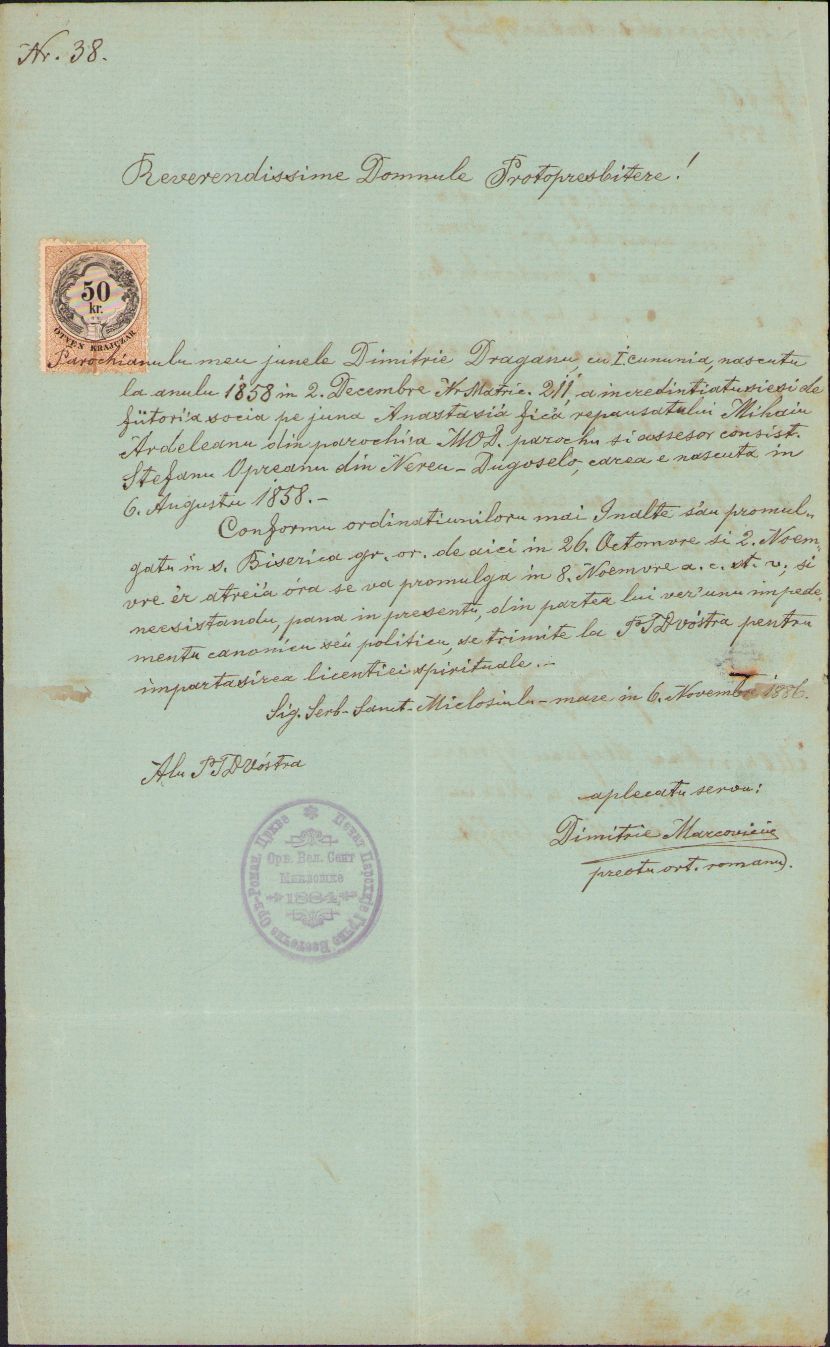 Nr. 38.
Reverendissime Domnule Protopresbitere!
50
kr.
ÖTVEN KRAJCZÁR
Parochianulu meu junele Dimitrie Draganu cu I. cununia, nascutu
la anulu 1858 in 2. Decembre Nr Matric. 211, a incredintiatusiesi de
fiitoria socia pe juna Anastasiá fiíca repausatului Mihaiu
Ardeleanu din parochi'a MOD. parochu si assesor consist.
Stefanu Opreanu din Nereu-Dugoselo, carea e nascuta in
6. Augustu 1858.-
Conformu ordinatiuniloru mai Inalte s'au promul-
gatu in s. Biserica gr. or. de aici in 26. Octomvre si 2. Noem-
vre ér atreiá óra se va promulga in 8. Noemvre a. c. st. v., si
neesistandu, pana in presentu, din partea lui ver'unu impede-
mentu canonicu séu politicu, se trimite la PTDvóstra pentru
impartasirea licentiei spirituale.-
Sig. Serb-Sanct-Miclosiulu-mare in 6. Novembre 1886.
Alu PTDVóstra
aplecatu servu:
Dimitrie Marcoviciu
preotu ort. romanu.
Печат Парохије Гречко Восточне Срп.-Роман. Цркве
Срп. Вел. Сент
Миклошке
1884.